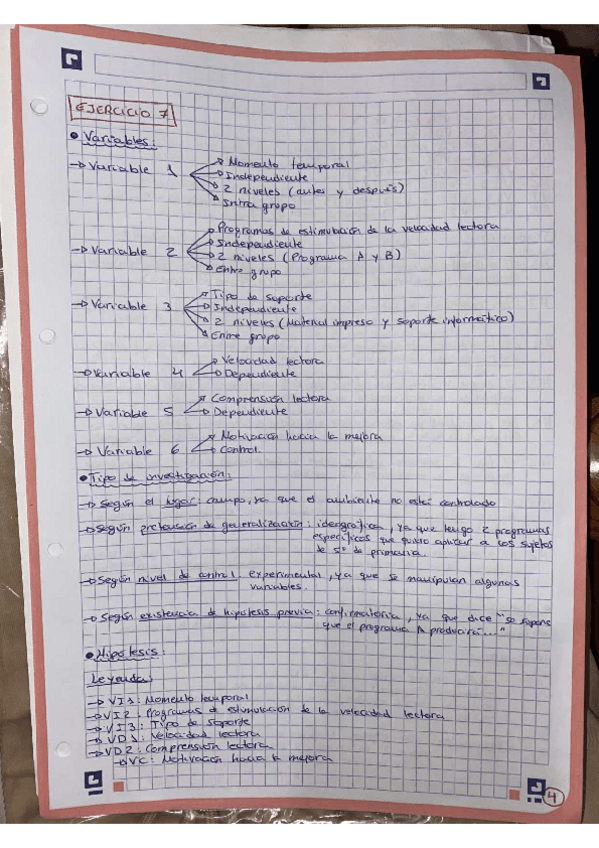 EJERCICIO 7
• Variables:
→ Variable 1
→ Momento temporal
→ Independiente
→ 2 niveles (antes y después)
→ Intra grupo
→ Variable 2
→ Programas de estimulación de la velocidad lectora
→ Independiente
→ 2 niveles (Programa A y B)
→ Entre grupo
→ Variable 3
→ Tipo de soporte
→ Independiente
→ 2 niveles (Material impreso y soporte informático)
→ Entre grupo
→ Variable 4
→ Velocidad lectora
→ Dependiente
→ Variable 5
→ Comprensión lectora
→ Dependiente
→ Variable 6
→ Motivación hacia la mejora
→ Control.
• Tipo de investigación:
→ Según el lugar: campo, ya que el ambiente no está controlado
→ Según pretensión de generalización: ideográfica, ya que tengo 2 programas
específicos que quiero aplicar a los sujetos
de 5º de primaria.
→ Según nivel de control: experimental, ya que se manipulan algunas
variables.
→ Según existencia de hipótesis previa: confirmatoria, ya que dice "se supone
que el programa A producirá..."
• Hipótesis:
Leyenda:
→ VI1: Momento temporal
→ VI2: Programas de estimulación de la velocidad lectora
→ VI3: Tipo de soporte
→ VD1: Velocidad lectora
→ VD2: Comprensión lectora
→ VC: Motivación hacia la mejora
4